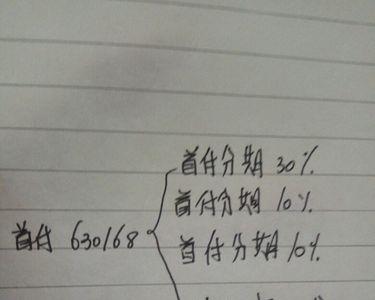 首付分期 30%
首付分期 10%
首付 630168
首付分期 10%